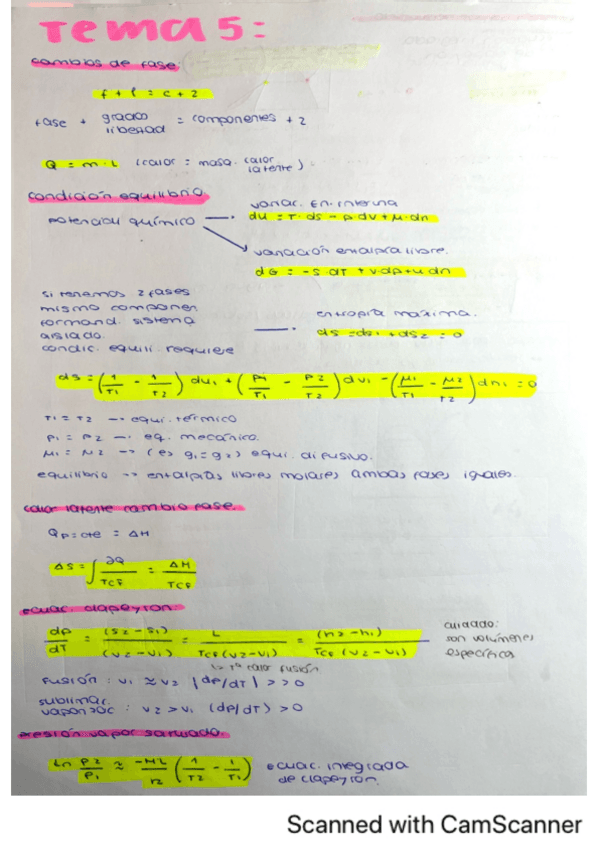 Tema 5:
cambios de fase:
f + l = c + 2
fase + grados libertad = componentes + 2
Q = m · L (calor = masa · calor latente)
condición equilibrio
potencial químico
variac. en. interna
du = T · ds - p · dv + μ · dn
variación entalpía libre.
dG = -s · dT + v · dp + μ dn
si tenemos 2 fases
mismo componen.
formand. sistema
aislado.
condic. equili. requiere
entropía máxima.
ds = ds1 + ds2 = 0
ds = (1/T1 - 1/T2) du1 + (P1/T1 - P2/T2) dv1 - (μ1/T1 - μ2/T2) dn1 = 0
T1 = T2 → equi. térmico
P1 = P2 → eq. mecánico.
μ1 = μ2 → (es g1 = g2) equi. difusivo.
equilibrio → entalpías libres molares ambas fases iguales.
calor latente cambio fase.
Qp=cte = ΔH
Δs = ∫ ∂Q/TCF = ΔH/TCF
ecuac. clapeyron:
dp/dT = (s2 - s1)/(v2 - v1) = L/TCF (v2 - v1) = (h2 - h1)/TCF (v2 - v1)
cuidado:
son volúmenes
específicos
↳ Tª calor fusión
fusión : v1 ≈ v2 |dp/dT| >> 0
sublimac.
: v2 > v1 (dp/dT) > 0
presión vapor saturado.
Ln P2/P1 ≈ -ML/R (1/T2 - 1/T1) ecuac. integrada
de clapeyron.
Scanned with CamScanner